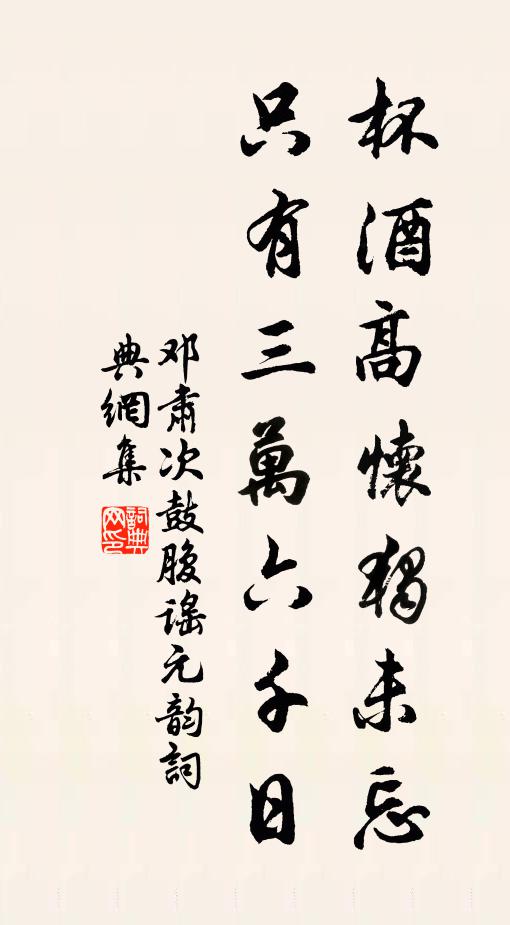 杯酒高懷獨未忘
只有三萬六千日
邓肅次鼓腹谣元韵詞
典網集
詞典
网印